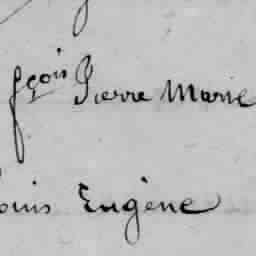 fçois Pierre Marie
ouis Eugène